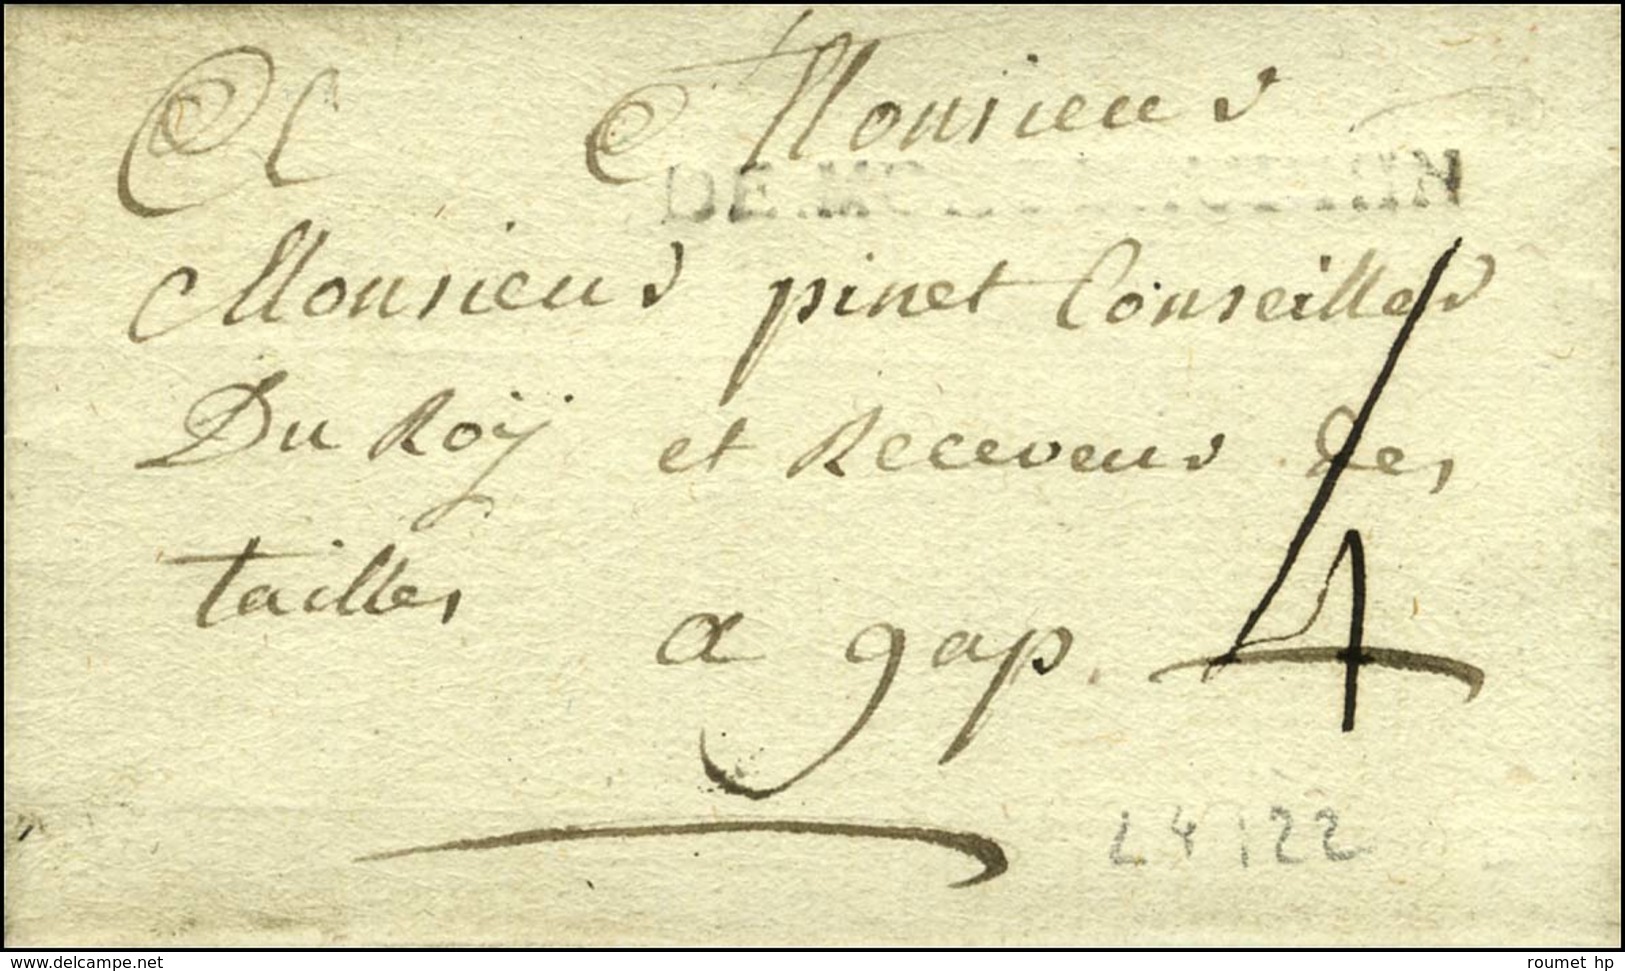 A Monsieur
Monsieur pinet Conseiller
Du Roÿ et Receveur des
tailles
a gap.
4
L4 122
www.delcampe.net
roumet hp